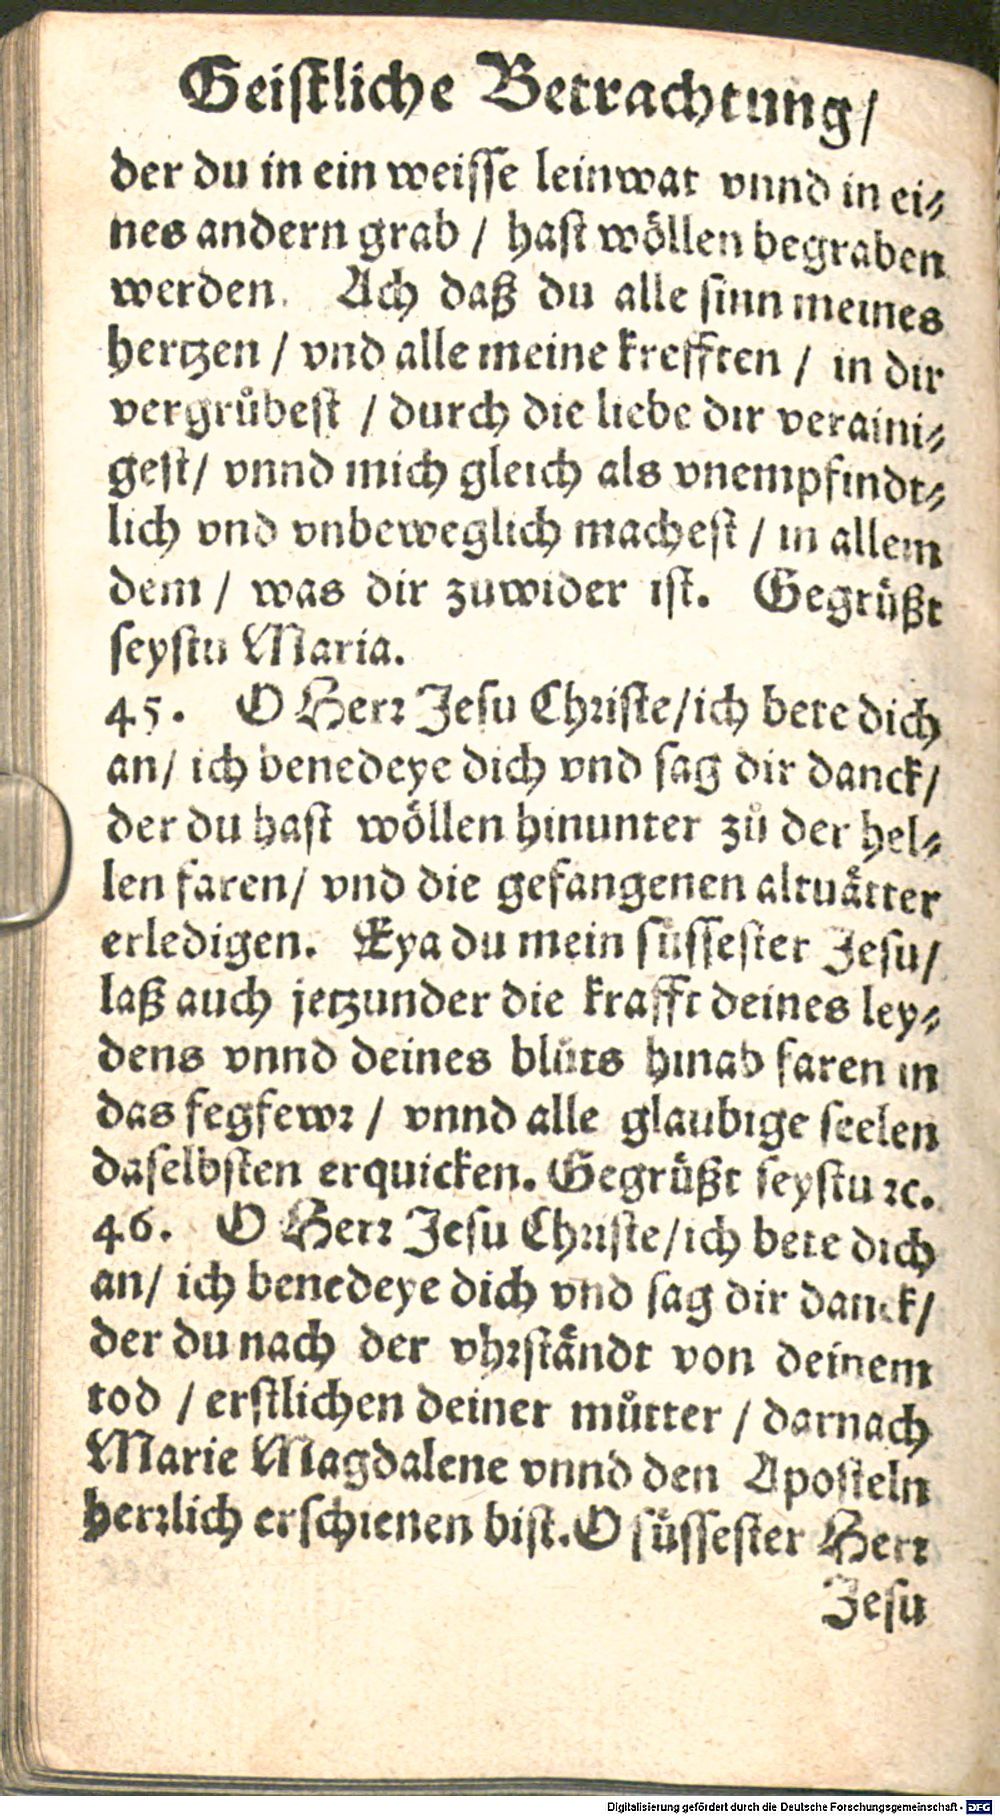 Geiſtliche Betrachtung/
der du in ein weiſſe leinwat vnnd in ei⸗
nes andern grab / haſt wöllen begraben
werden. Ach daß du alle ſinn meines
hertzen / vnd alle meine krefften / in dir
vergruͤbeſt / durch die liebe dir veraini⸗
geſt/ vnnd mich gleich als vnempfindt⸗
lich vnd vnbeweglich macheſt / in allem
dem / was dir zuwider iſt. Gegrüßt
ſeyſtu Maria.
45. O Herꝛ Jeſu Chꝛiſte/ich bete dich
an/ ich benedeye dich vnd ſag dir danck/
der du haſt wöllen hinunter zuͦ der hel⸗
len faren/ vnd die gefangenen altuaͤtter
erledigen. Eya du mein ſüſſeſter Jeſu/
laß auch jetzunder die krafft deines ley⸗
dens vnnd deines bluͦts hinab faren in
das fegfewꝛ / vnnd alle glaubige ſeelen
daſelbſten erquicken. Gegrüßt ſeyſtu ꝛc.
46. O Herꝛ Jeſu Chꝛiſte/ich bete dich
an/ ich benedeye dich vnd ſag dir danck/
der du nach der vhꝛſtändt von deinem
tod / erſtlichen deiner muͦtter / darnach
Marie Magdalene vnnd den Apoſteln
herꝛlich erſchienen biſt. O ſüſſeſter Herꝛ
Jeſu
Digitalisierung gefördert durch die Deutsche Forschungsgemeinschaft - DFG